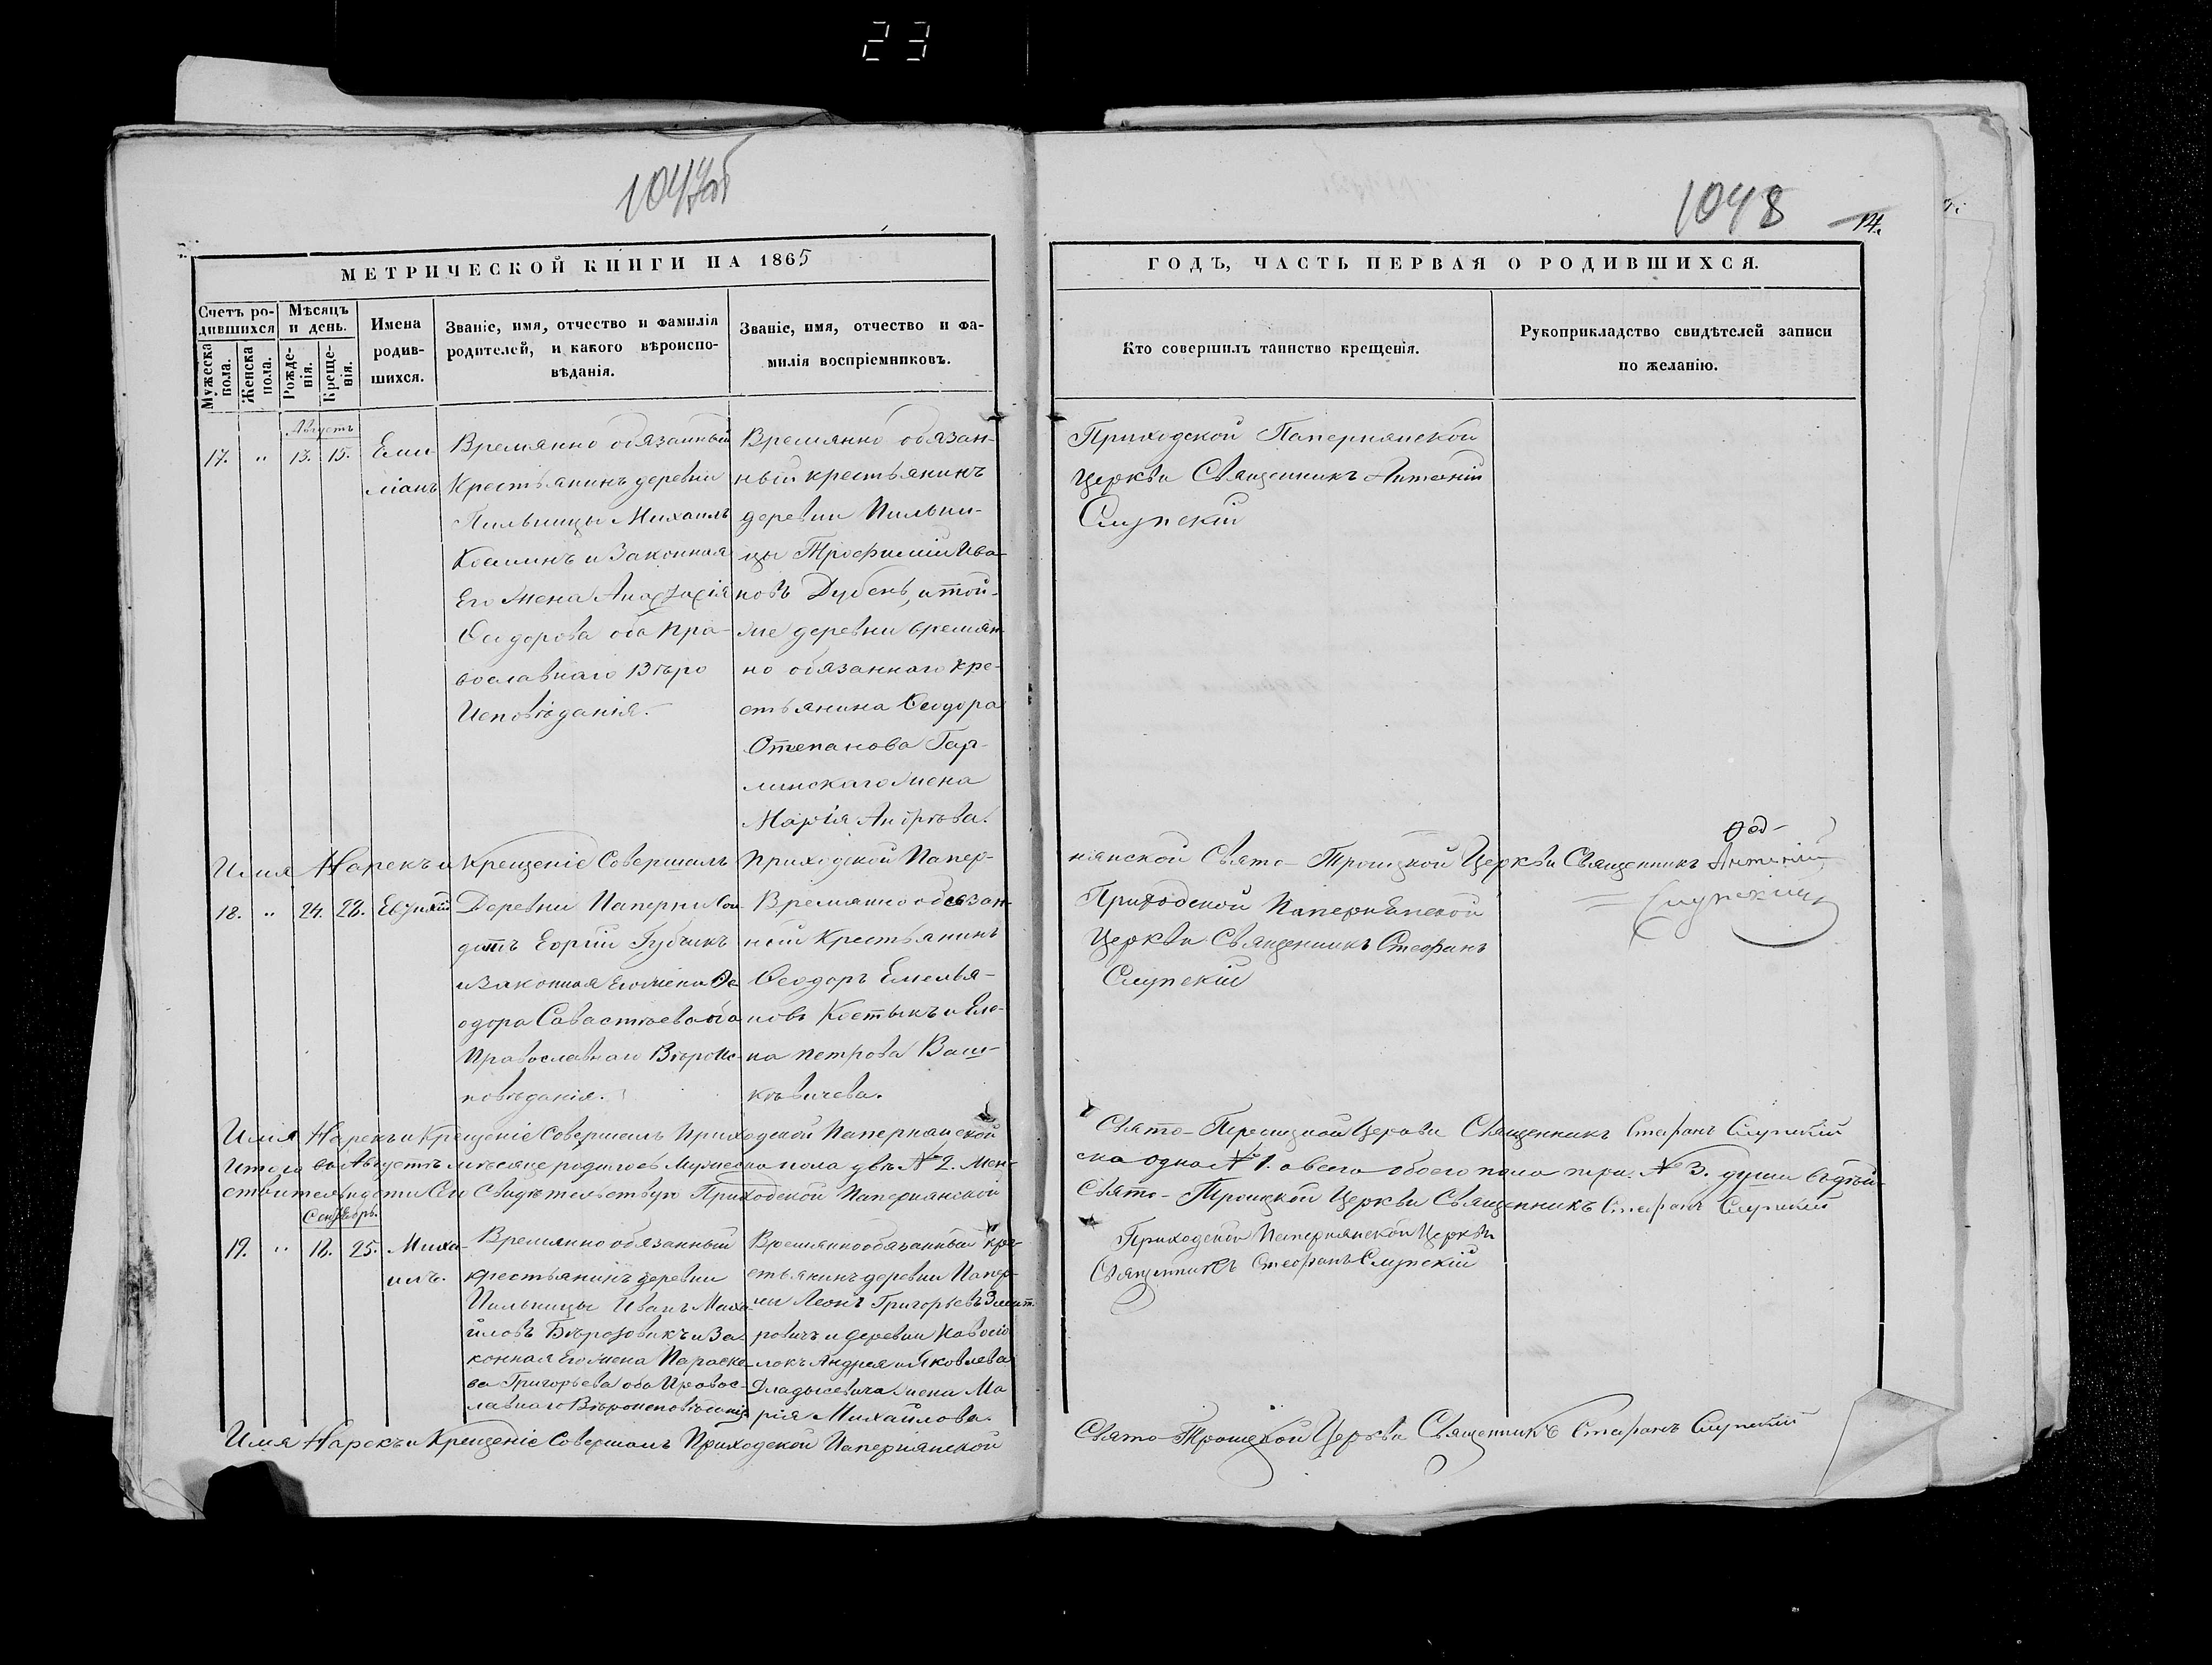 23
1047об
1048
14.
МЕТРИЧЕСКОЙ КНИГИ НА 1865
Счетъ родившихся
Мѣсяцъ и день.
Мужеска пола.
Женска пола.
Рожденія.
Крещенія.
Имена родившихся.
Званіе, имя, отчество и фамилія
родителей, и какого вѣроиспо-
вѣданія.
Званіе, имя, отчество и фа-
милія воспріемниковъ.
ГОДЪ, ЧАСТЬ ПЕРВАЯ О РОДИВШИХСЯ.
Кто совершилъ таинство крещенія.
Рукоприкладство свидѣтелей записи
по желанію.
Августъ
17. " 13. 15.
Еми-
ліанъ
Времянно обязанный
Крестьянинъ деревни
Пильницы Михаилъ
и Законная
Его Жена
Ѳедорова оба Пра-
вославнаго Вѣро
Исповѣданія.
Времянно обязан-
ный крестьянинъ
деревни Пильни-
цы Трофимій Ива-
новъ Дубень, и той-
же деревни времян-
но обязаннаго кре-
стьянина Ѳеодора
Степанова Гар-
минскаго жена
Марія Андрѣева.
Приходской Папернянской
Церкви Священникъ Антоній
Слупскій
Имя Нарекъ и Крещеніе Совершилъ Приходской Папер-
нянской Свято-Троицкой Церкви Священникъ Антоній
Слупскій
18. " 24. 28.
Евѳимій
Деревни Паперни Сол-
датъ Еоргій Губчикъ
и Законная Его Жена Ѳе
одора Савастѣева оба
Православнаго Вѣроис-
повѣданія.
Времянно обязан-
ный Крестьянинъ
Ѳеодоръ Емелья-
новъ Костыкъ и Еле-
на Петрова Ваш-
кѣвичева.
Приходской Папернянской
Церкви Священникъ Стефанъ
Слупскій
Имя Нарекъ и Крещеніе Совершилъ Приходской Папернянской
Свято-Троицкой Церкви Священникъ Стефанъ Слупскій
Итого въ Августѣ мѣсяцѣ родилось Мужеска пола двѣ № 2. Жен-
ска одна № 1. а всего обоего пола три. № 3. души въ дѣй-
ствительности Сей Свидѣтельствую Приходской Папернянской
Свято-Троицкой Церкви Священникъ Стефанъ Слупскій
Сентябрь.
19. " 18. 25.
Миха-
илъ.
Времянно обязанный
крестьянинъ деревни
Пильницы Иванъ Миха
йловъ и За-
конная Его Жена Параске
ва Григорьева оба Правос-
лавнаго Вѣроисповѣданія
Времяннообязанный кре-
стьянинъ деревни Папер-
ни Леонъ Григорьевъ
и деревни Новосіо
локъ Андрея Яковлева
жена Ма
рія Михайлова.
Приходской Папернянской Церкви
Священникъ Стефанъ Слупскій
Имя Нарекъ и Крещеніе Совершилъ Приходской Папернянской
Свято-Троицкой Церкви Священникъ Стефанъ Слупскій